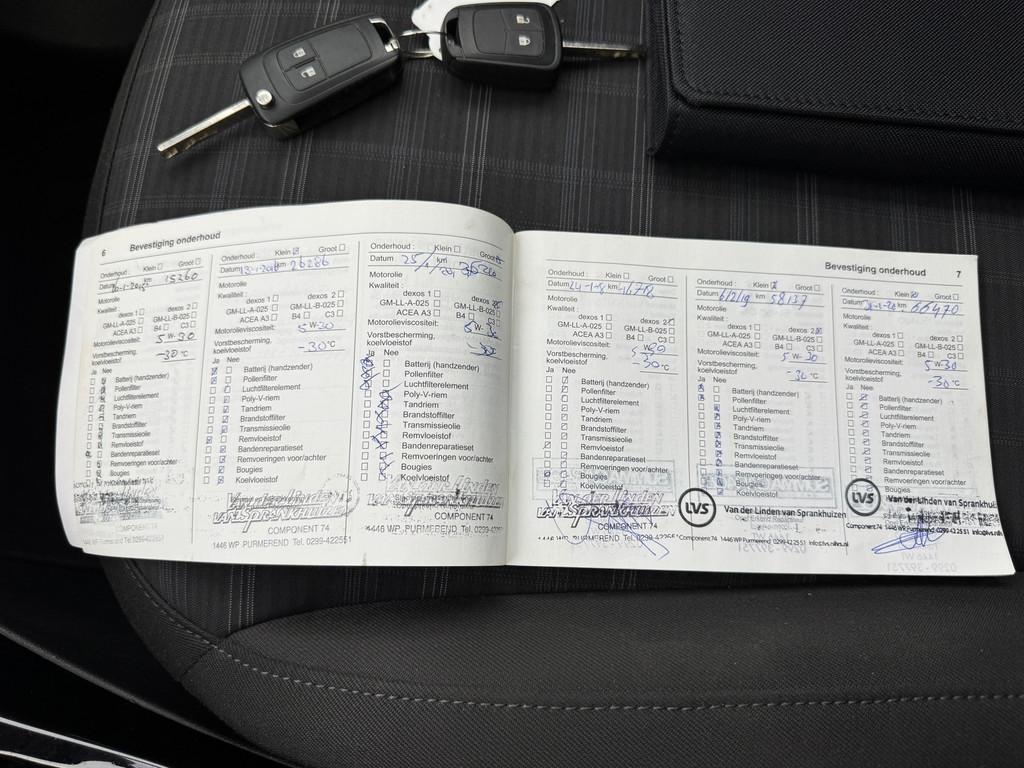 6 Bevestiging onderhoud
Onderhoud : Klein ☐ Groot ☐
Datum km 15260
Motorolie
Kwaliteit :
dexos 1 ☐ dexos 2 ☐
GM-LL-A-025 ☐ GM-LL-B-025 ☐
ACEA A3 ☐ B4 ☐ C3 ☐
Motorolieviscositeit:
5 W-30
Vorstbescherming,
koelvloeistof
-30°C
Ja Nee
Batterij (handzender)
Pollenfilter
Luchtfilterelement
Poly-V-riem
Tandriem
Brandstoffilter
Transmissieolie
Remvloeistof
Bandenreparatieset
Remvoeringen voor/achter
Bougies
Koelvloeistof
COMPONENT 74
1446 WP Purmerend Tel. 0299-422551
Onderhoud : Klein ☒ Groot ☐
Datum km 26286
Motorolie
Kwaliteit :
dexos 1 ☐ dexos 2 ☐
GM-LL-A-025 ☐ GM-LL-B-025 ☐
ACEA A3 ☐ B4 ☐ C3 ☐
Motorolieviscositeit:
5 W-30
Vorstbescherming,
koelvloeistof
-30°C
Ja Nee
Batterij (handzender)
Pollenfilter
Luchtfilterelement
Poly-V-riem
Tandriem
Brandstoffilter
Transmissieolie
Remvloeistof
Bandenreparatieset
Remvoeringen voor/achter
Bougies
Koelvloeistof
Van der Linden
van Sprankhuizen
COMPONENT 74
1446 WP PURMEREND Tel. 0299-422551
Onderhoud : Klein ☐ Groot ☒
Datum 25/1/ km
Motorolie
Kwaliteit :
dexos 1 ☐ dexos 2 ☒
GM-LL-A-025 ☐ GM-LL-B-025 ☐
ACEA A3 ☐ B4 ☐ C3 ☐
Motorolieviscositeit:
5 W-30
Vorstbescherming,
koelvloeistof
Ja Nee
Batterij (handzender)
Pollenfilter
Luchtfilterelement
Poly-V-riem
Tandriem
Brandstoffilter
Transmissieolie
Remvloeistof
Bandenreparatieset
Remvoeringen voor/achter
Bougies
Koelvloeistof
Van der Linden
van Sprankhuizen
COMPONENT 74
1446 WP PURMEREND Tel. 0299-422551
Bevestiging onderhoud 7
Onderhoud : Klein ☐ Groot ☐
Datum 24-1-18 km 46718
Motorolie
Kwaliteit :
dexos 1 ☐ dexos 2 ☒
GM-LL-A-025 ☐ GM-LL-B-025 ☐
ACEA A3 ☐ B4 ☐ C3 ☐
Motorolieviscositeit:
5 W30
Vorstbescherming,
koelvloeistof
30°C
Ja Nee
Batterij (handzender)
Pollenfilter
Luchtfilterelement
Poly-V-riem
Tandriem
Brandstoffilter
Transmissieolie
Remvloeistof
Bandenreparatieset
Remvoeringen voor/achter
Bougies
Koelvloeistof
Van der Linden
van Sprankhuizen
COMPONENT 74
Onderhoud : Klein ☒ Groot ☐
Datum 6/2/19 km 58137
Motorolie
Kwaliteit :
dexos 1 ☐ dexos 2 ☒
GM-LL-A-025 ☐ GM-LL-B-025 ☐
ACEA A3 ☐ B4 ☐ C3 ☐
Motorolieviscositeit:
5 W-30
Vorstbescherming,
koelvloeistof
-30°C
Ja Nee
Batterij (handzender)
Pollenfilter
Luchtfilterelement
Poly-V-riem
Tandriem
Brandstoffilter
Transmissieolie
Remvloeistof
Bandenreparatieset
Remvoeringen voor/achter
Bougies
Koelvloeistof
LVS Van der Linden van Sprankhuizen
Component 74 1446 WP Purmerend 0299 42 25 51 info@lvs.nl
Onderhoud : Klein ☒ Groot ☐
Datum km 66470
Motorolie
Kwaliteit :
dexos 1 ☐ dexos 2 ☐
GM-LL-A-025 ☐ GM-LL-B-025 ☐
ACEA A3 ☐ B4 ☐ C3 ☐
Motorolieviscositeit:
5 W-30
Vorstbescherming,
koelvloeistof
-30°C
Ja Nee
Batterij (handzender)
Pollenfilter
Luchtfilterelement
Poly-V-riem
Tandriem
Brandstoffilter
Transmissieolie
Remvloeistof
Bandenreparatieset
Remvoeringen voor/achter
Bougies
Koelvloeistof
LVS Van der Linden van Sprankhuizen
Component 74 1446 WP Purmerend 0299 42 25 51